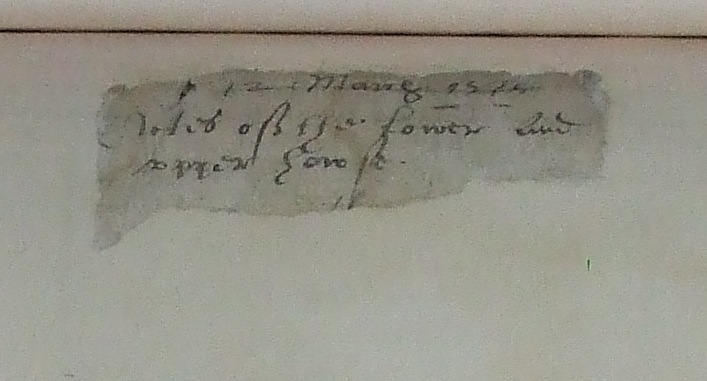 12 Marcij 1575
Notes off the lower and
vpper howse.